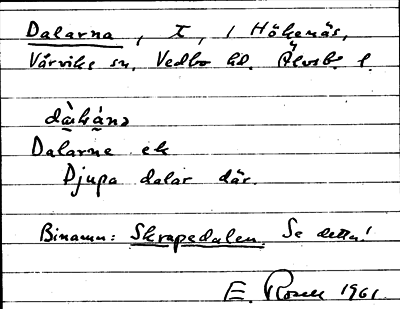 Dalarna, t, i Hökenäs,
Vårviks sn. Vedbo hd. Älvsb. l.
dàɳa
Dalarne ek
Djupa dalar där.
Binamn: Skrapedalen. Se detta!
E. Rosell 1961